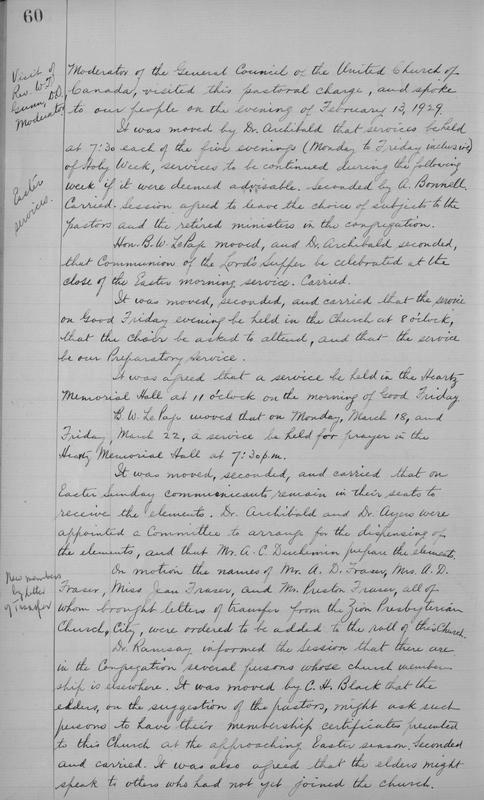 60
Visit of
Rev. W. T.
Gunn, D.D.
Moderator
Moderator of the General Council of the United Church of
Canada, visited this pastoral charge, and spoke
to our people on the evening of February 13, 1929.
It was moved by Dr. Archibald that services be held
at 7:30 each of the five evenings (Monday to Friday inclusive)
of Holy Week, services to be continued during the following
week if it were deemed advisable. Seconded by A. Bonnell.
Carried. Session agreed to leave the choice of subjects to the
pastors and the retired ministers in the congregation.
Easter
services.
Hon. B. W. LePage moved, and Dr. Archibald seconded,
that Communion of the Lord's Supper be celebrated at the
close of the Easter morning service. Carried.
It was moved, seconded, and carried that the service
on Good Friday evening be held in the Church at 8 o'clock,
that the choir be asked to attend, and that the service
be our Preparatory Service.
It was agreed that a service be held in the Heartz
Memorial Hall at 11 o'clock on the morning of Good Friday.
B. W. LePage moved that on Monday, March 18, and
Friday, March 22, a service be held for prayer in the
Heartz Memorial Hall at 7:30 p.m.
It was moved, seconded, and carried that on
Easter Sunday communicants remain in their seats to
receive the elements. Dr. Archibald and Dr. Ayers were
appointed a Committee to arrange for the dispensing of
the elements, and that Mr. A. C. Duchemin prepare the elements.
New members
by letter
of Transfer
On motion the names of Mr. A. D. Fraser, Mrs. A. D.
Fraser, Miss Jean Fraser, and Mr. Preston Fraser, all of
whom brought letters of transfer from the Zion Presbyterian
Church, City, were ordered to be added to the roll of this Church.
Dr. Ramsay informed the Session that there are
in the Congregation several persons whose church member-
ship is elsewhere. It was moved by C. H. Black that the
elders, on the suggestion of the pastors, might ask such
persons to have their membership certificates presented
to this Church at the approaching Easter season. Seconded
and carried. It was also agreed that the elders might
speak to others who had not yet joined the church.